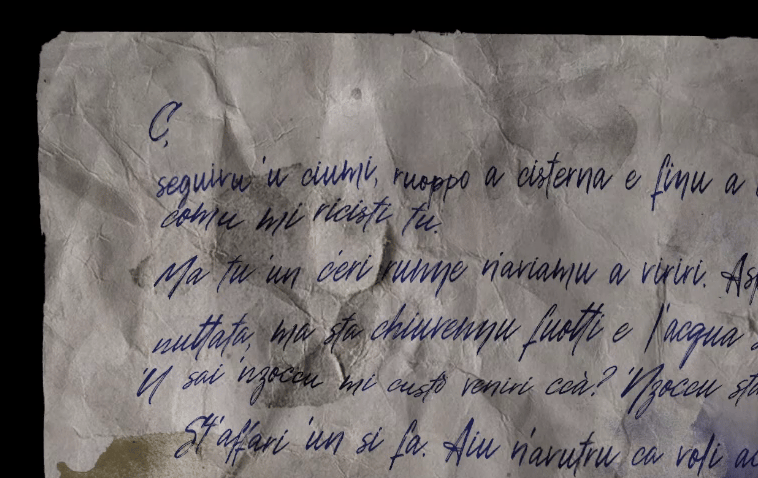 C,
seguivu 'u ciumi, ruoppo a cisterna e finu a
comu mi ricisti tu.
Ma tu 'un c'eri runne n'aviamu a viriri.
nuttata, ma sta chiuvennu fuotti e l'acqua
'U sai 'nzoccu mi custò veniri ccà? 'Nzoccu sta
St'affari 'un si fa. Aiu n'avutru ca voli